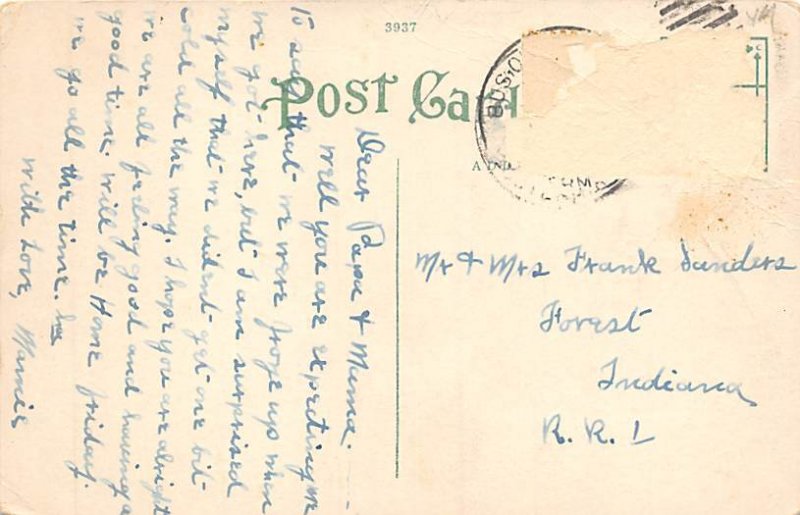 3937
POST CARD
Dear Papa & Mama.
well you are expecting me
to say that we were froze up when
we got here, but I am surprised
myself that we dident get one bit
cold all the way. I hope you are alright
we are all feeling good and having a
good time. will be Home friday.
we go all the time.
with Love, Mamie
Mr & Mrs Frank Sanders
Forest
Indiana
R. R. 1